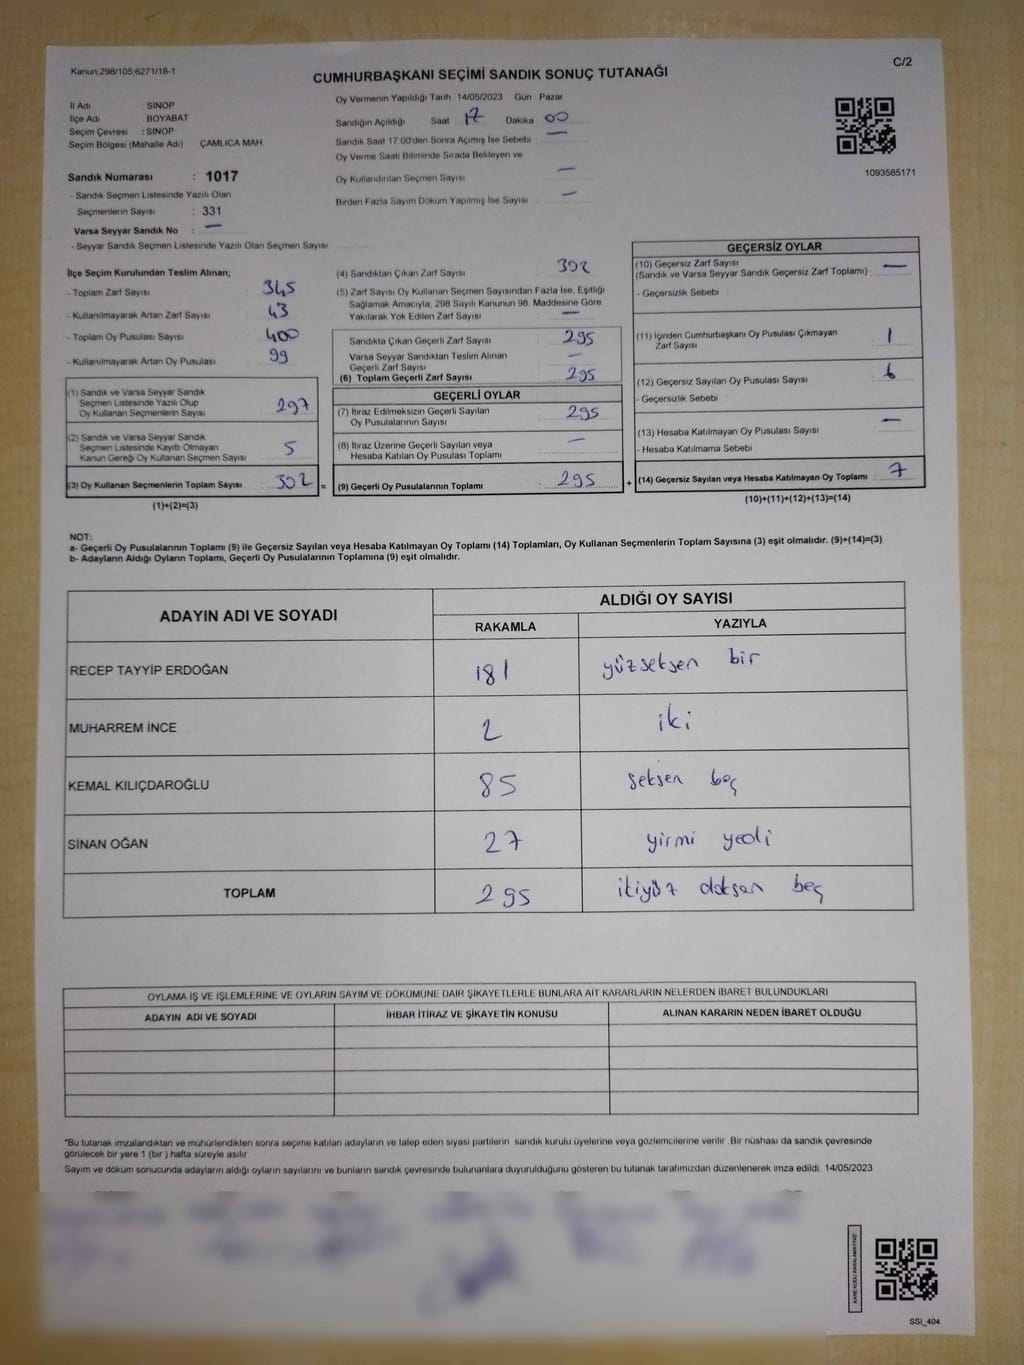 Kanun;298/105;6271/18-1
C/2
CUMHURBAŞKANI SEÇİMİ SANDIK SONUÇ TUTANAĞI
İl Adı : SİNOP
İlçe Adı : BOYABAT
Seçim Çevresi : SİNOP
Seçim Bölgesi (Mahalle Adı) ÇAMLICA MAH.
Sandık Numarası : 1017
- Sandık Seçmen Listesinde Yazılı Olan
Seçmenlerin Sayısı : 331
Varsa Seyyar Sandık No : —
- Seyyar Sandık Seçmen Listesinde Yazılı Olan Seçmen Sayısı
Oy Vermenin Yapıldığı Tarih 14/05/2023 Gün : Pazar
Sandığın Açıldığı Saat 17 Dakika 00
Sandık Saat 17.00'den Sonra Açımış İse Sebebi : —
Oy Verme Saati Bitiminde Sırada Bekleyen ve
Oy Kullandırılan Seçmen Sayısı : —
Birden Fazla Sayım Döküm Yapılmış İse Sayısı : —
1093585171
İlçe Seçim Kurulundan Teslim Alınan;
- Toplam Zarf Sayısı : 345
- Kullanılmayarak Artan Zarf Sayısı : 43
- Toplam Oy Pusulası Sayısı : 400
- Kullanılmayarak Artan Oy Pusulası : 99
(1) Sandık ve Varsa Seyyar Sandık
Seçmen Listesinde Yazılı Olup
Oy Kullanan Seçmenlerin Sayısı : 297
(2) Sandık ve Varsa Seyyar Sandık
Seçmen Listesinde Kayıtlı Olmayan
Kanun Gereği Oy Kullanan Seçmen Sayısı : 5
(3) Oy Kullanan Seçmenlerin Toplam Sayısı : 302 =
(1)+(2)=(3)
(4) Sandıktan Çıkan Zarf Sayısı : 302
(5) Zarf Sayısı Oy Kullanan Seçmen Sayısından Fazla İse, Eşitliği
Sağlamak Amacıyla, 298 Sayılı Kanunun 98. Maddesine Göre
Yakılarak Yok Edilen Zarf Sayısı : —
Sandıkta Çıkan Geçerli Zarf Sayısı : 295
Varsa Seyyar Sandıktan Teslim Alınan
Geçerli Zarf Sayısı : —
(6) Toplam Geçerli Zarf Sayısı : 295
GEÇERLİ OYLAR
(7) İtiraz Edilmeksizin Geçerli Sayılan
Oy Pusulalarının Sayısı : 295
(8) İtiraz Üzerine Geçerli Sayılan veya
Hesaba Katılan Oy Pusulası Toplamı : —
(9) Geçerli Oy Pusulalarının Toplamı : 295 +
GEÇERSİZ OYLAR
(10) Geçersiz Zarf Sayısı
(Sandık ve Varsa Seyyar Sandık Geçersiz Zarf Toplamı) : —
- Geçersizlik Sebebi
(11) İçinden Cumhurbaşkanı Oy Pusulası Çıkmayan
Zarf Sayısı : 1
(12) Geçersiz Sayılan Oy Pusulası Sayısı : 6
- Geçersizlik Sebebi
(13) Hesaba Katılmayan Oy Pusulası Sayısı : —
- Hesaba Katılmama Sebebi
(14) Geçersiz Sayılan veya Hesaba Katılmayan Oy Toplamı : 7
(10)+(11)+(12)+(13)=(14)
NOT:
a- Geçerli Oy Pusulalarının Toplamı (9) ile Geçersiz Sayılan veya Hesaba Katılmayan Oy Toplamı (14) Toplamları, Oy Kullanan Seçmenlerin Toplam Sayısına (3) eşit olmalıdır. (9)+(14)=(3)
b- Adayların Aldığı Oyların Toplamı, Geçerli Oy Pusulalarının Toplamına (9) eşit olmalıdır.
ADAYIN ADI VE SOYADI
ALDIĞI OY SAYISI
RAKAMLA YAZIYLA
RECEP TAYYİP ERDOĞAN 181 yüzseksen bir
MUHARREM İNCE 2 iki
KEMAL KILIÇDAROĞLU 85 seksen beş
SİNAN OĞAN 27 yirmi yedi
TOPLAM 295 ikiyüz doksan beş
OYLAMA İŞ VE İŞLEMLERİNE VE OYLARIN SAYIM VE DÖKÜMÜNE DAİR ŞİKAYETLERLE BUNLARA AİT KARARLARIN NELERDEN İBARET BULUNDUKLARI
ADAYIN ADI VE SOYADI İHBAR İTİRAZ VE ŞİKAYETİN KONUSU ALINAN KARARIN NEDEN İBARET OLDUĞU
*Bu tutanak imzalandıktan ve mühürlendikten sonra seçime katılan adayların ve talep eden siyasi partilerin sandık kurulu üyelerine veya gözlemcilerine verilir. Bir nüshası da sandık çevresinde
görülecek bir yere 1 (bir ) hafta süreyle asılır.
Sayım ve döküm sonucunda adayların aldığı oyların sayılarını ve bunların sandık çevresinde bulunanlara duyurulduğunu gösteren bu tutanak tarafımızdan düzenlenerek imza edildi. 14/05/2023
KARE KODU KARALAMAYINIZ!
SSI_404